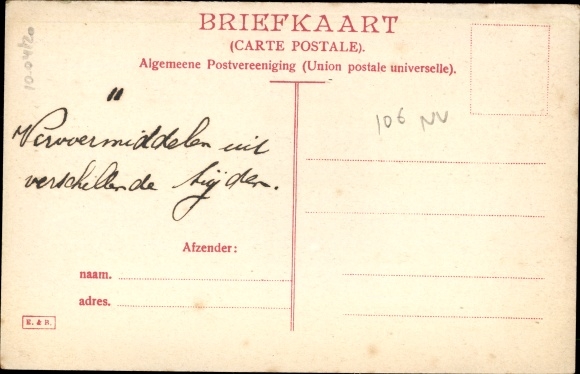 BRIEFKAART
(CARTE POSTALE).
Algemeene Postvereeniging (Union postale universelle).
10-04/20
106 NV
"
Vervoermiddelen uit
verschillende tijden.
Afzender:
naam.
adres.
E. & B.